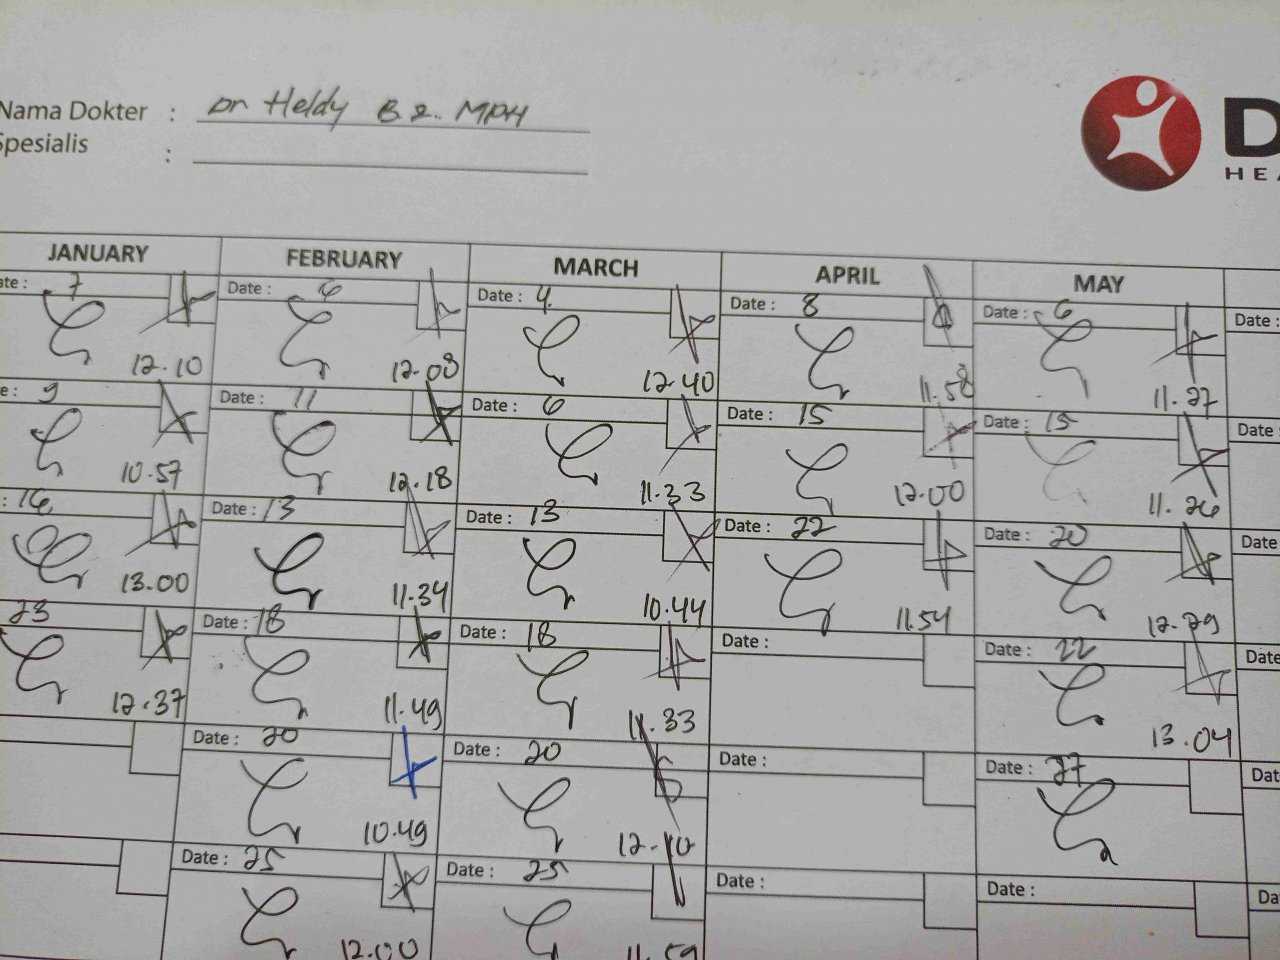 Nama Dokter : Dr Heldy B.Z. MPH
Spesialis :
D
HEA
JANUARY FEBRUARY MARCH APRIL MAY
ate: 7 Date: 6 Date: 4 Date: 8 Date: 6 Date:
12.10 12.08 12.40 11.58 11.27
e: 9 Date: 11 Date: 6 Date: 15 Date: 15 Date
10.57 12.18 11.33 12.00 11.26
: 16 Date: 13 Date: 13 Date: 22 Date: 20 Date
13.00 11.34 10.44 11.54 12.29
23 Date: 18 Date: 18 Date: Date: 22 Date
12.37 11.49 11.33 13.04
Date: 20 Date: 20 Date: Date: 27 Dat
10.49 12.10
Date: 25 Date: 25 Date: Date: Da
12.00 11.59